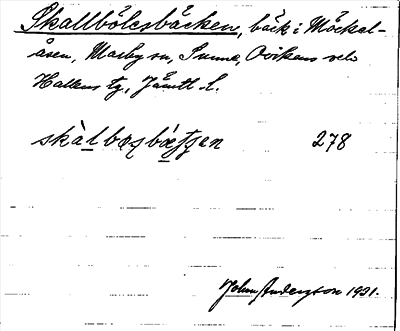 Skallbölesbäcken, bäck i Möckel-
åsen, Marby sn, Sunne, Ovikens och
Hallens tg, Jämtl. l.
skàlbøɐbǽƫʂen 278
John Anderzson 1931.